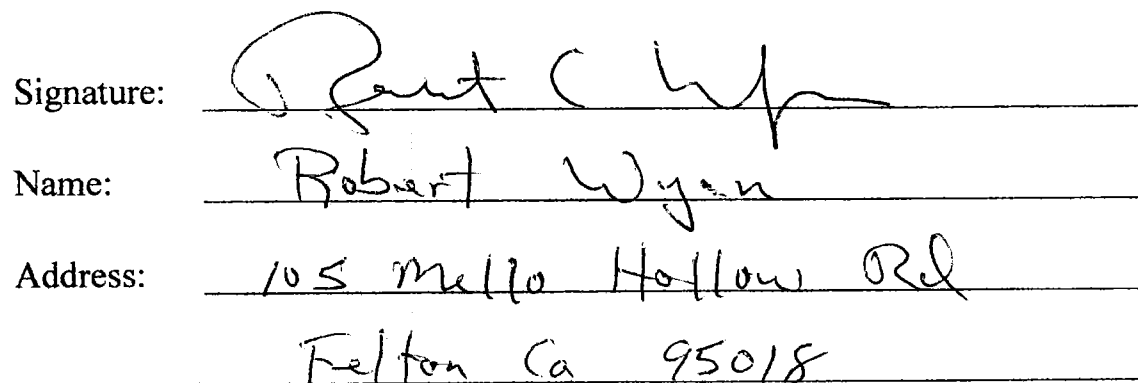 Signature: Robert C Wyan
Name: Robert Wyan
Address: 105 Mello Hollow Rd
Felton Ca 95018